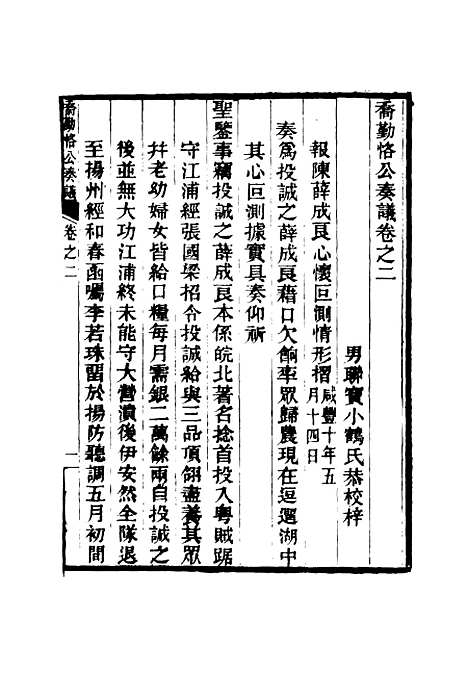 喬勤恪公奏議卷之二
男聯寶小鶴氏恭校梓
報陳薛成良心懷叵測情形摺咸豐十年五月十四日
奏爲投誠之薛成良藉口欠餉率眾歸農現在逗遛湖中
其心叵測據實具奏仰祈
聖鑒事竊投誠之薛成良本係皖北著名捻首投入粵賊踞
守江浦經張國梁招令投誠給與三品頂翎盡養其眾
幷老幼婦女皆給口糧每月需銀二萬餘兩自投誠之
後並無大功江浦終未能守大營潰後伊安然全隊退
至揚州經和春函囑李若珠留於揚防聽調五月初間
喬勤恪公奏議
卷之二
一